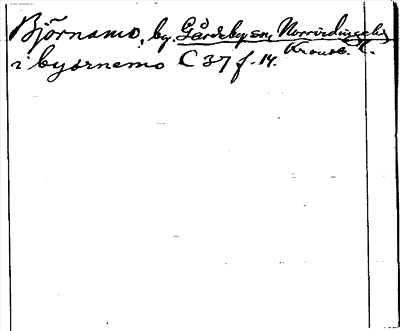 Björnamo, by. Gårdsby sn, Norrvidinge hd
Kronob. l.
i byornemo C 37 f. 14.